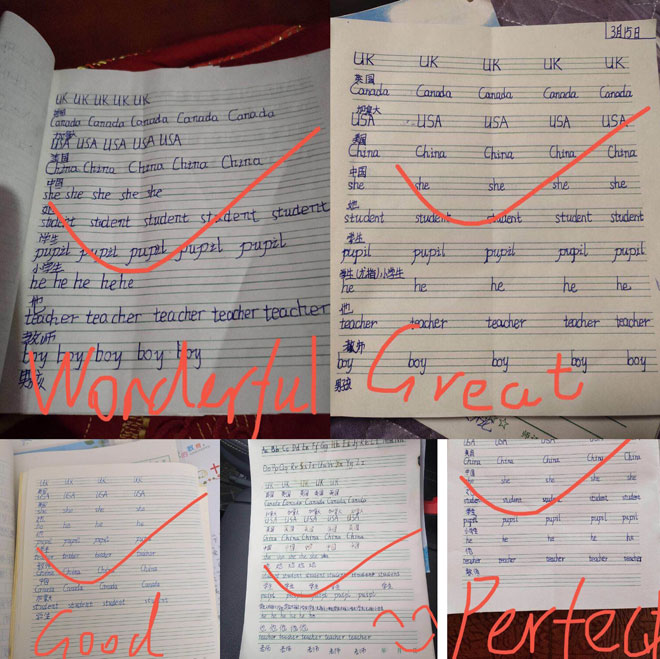 UK UK UK UK UK
英国
Canada Canada Canada Canada Canada
加拿大
USA USA USA USA USA
美国
China China China China China
中国
she she she she she
她
student student student student student
学生
pupil pupil pupil pupil pupil
小学生
he he he he he
他
teacher teacher teacher teacher teacher
教师
boy boy boy boy boy
男孩
Wonderful
3月15日
UK UK UK UK UK
英国
Canada Canada Canada Canada Canada
加拿大
USA USA USA USA USA
美国
China China China China China
中国
she she she she she
她
student student student student student
学生
pupil pupil pupil pupil pupil
学生(尤指)小学生
he he he he he
他
teacher teacher teacher teacher teacher
教师
boy boy boy boy boy
男孩
Great
UK UK UK UK
英国
USA USA USA USA
美国
she she she she
她
he he he he
他
pupil pupil pupil pupil
学生
teacher teacher teacher teacher
教师
China China China China
中国
Canada Canada Canada Canada
加拿大
student student student student
学生
Good
UK UK UK UK UK
英国 英国 英国 英国 英国
Canada Canada Canada Canada Canada
USA USA USA USA USA
美国 美国 美国 美国 美国
China China China China China
中国 中国 中国 中国
she she she she she
student student student student student student
学生 学生 学生 学生 学生
pupil pupil pupil pupil pupil
he he he he he
他 他 他 他 他
teacher teacher teacher teacher teacher
老师 老师 老师 老师
USA USA USA USA USA
美国
China China China China China
中国
she she she she she
她
student student student student student
学生
pupil pupil pupil pupil pupil
小学生
he he he he he
他
teacher teacher teacher teacher teacher
教师
Perfect